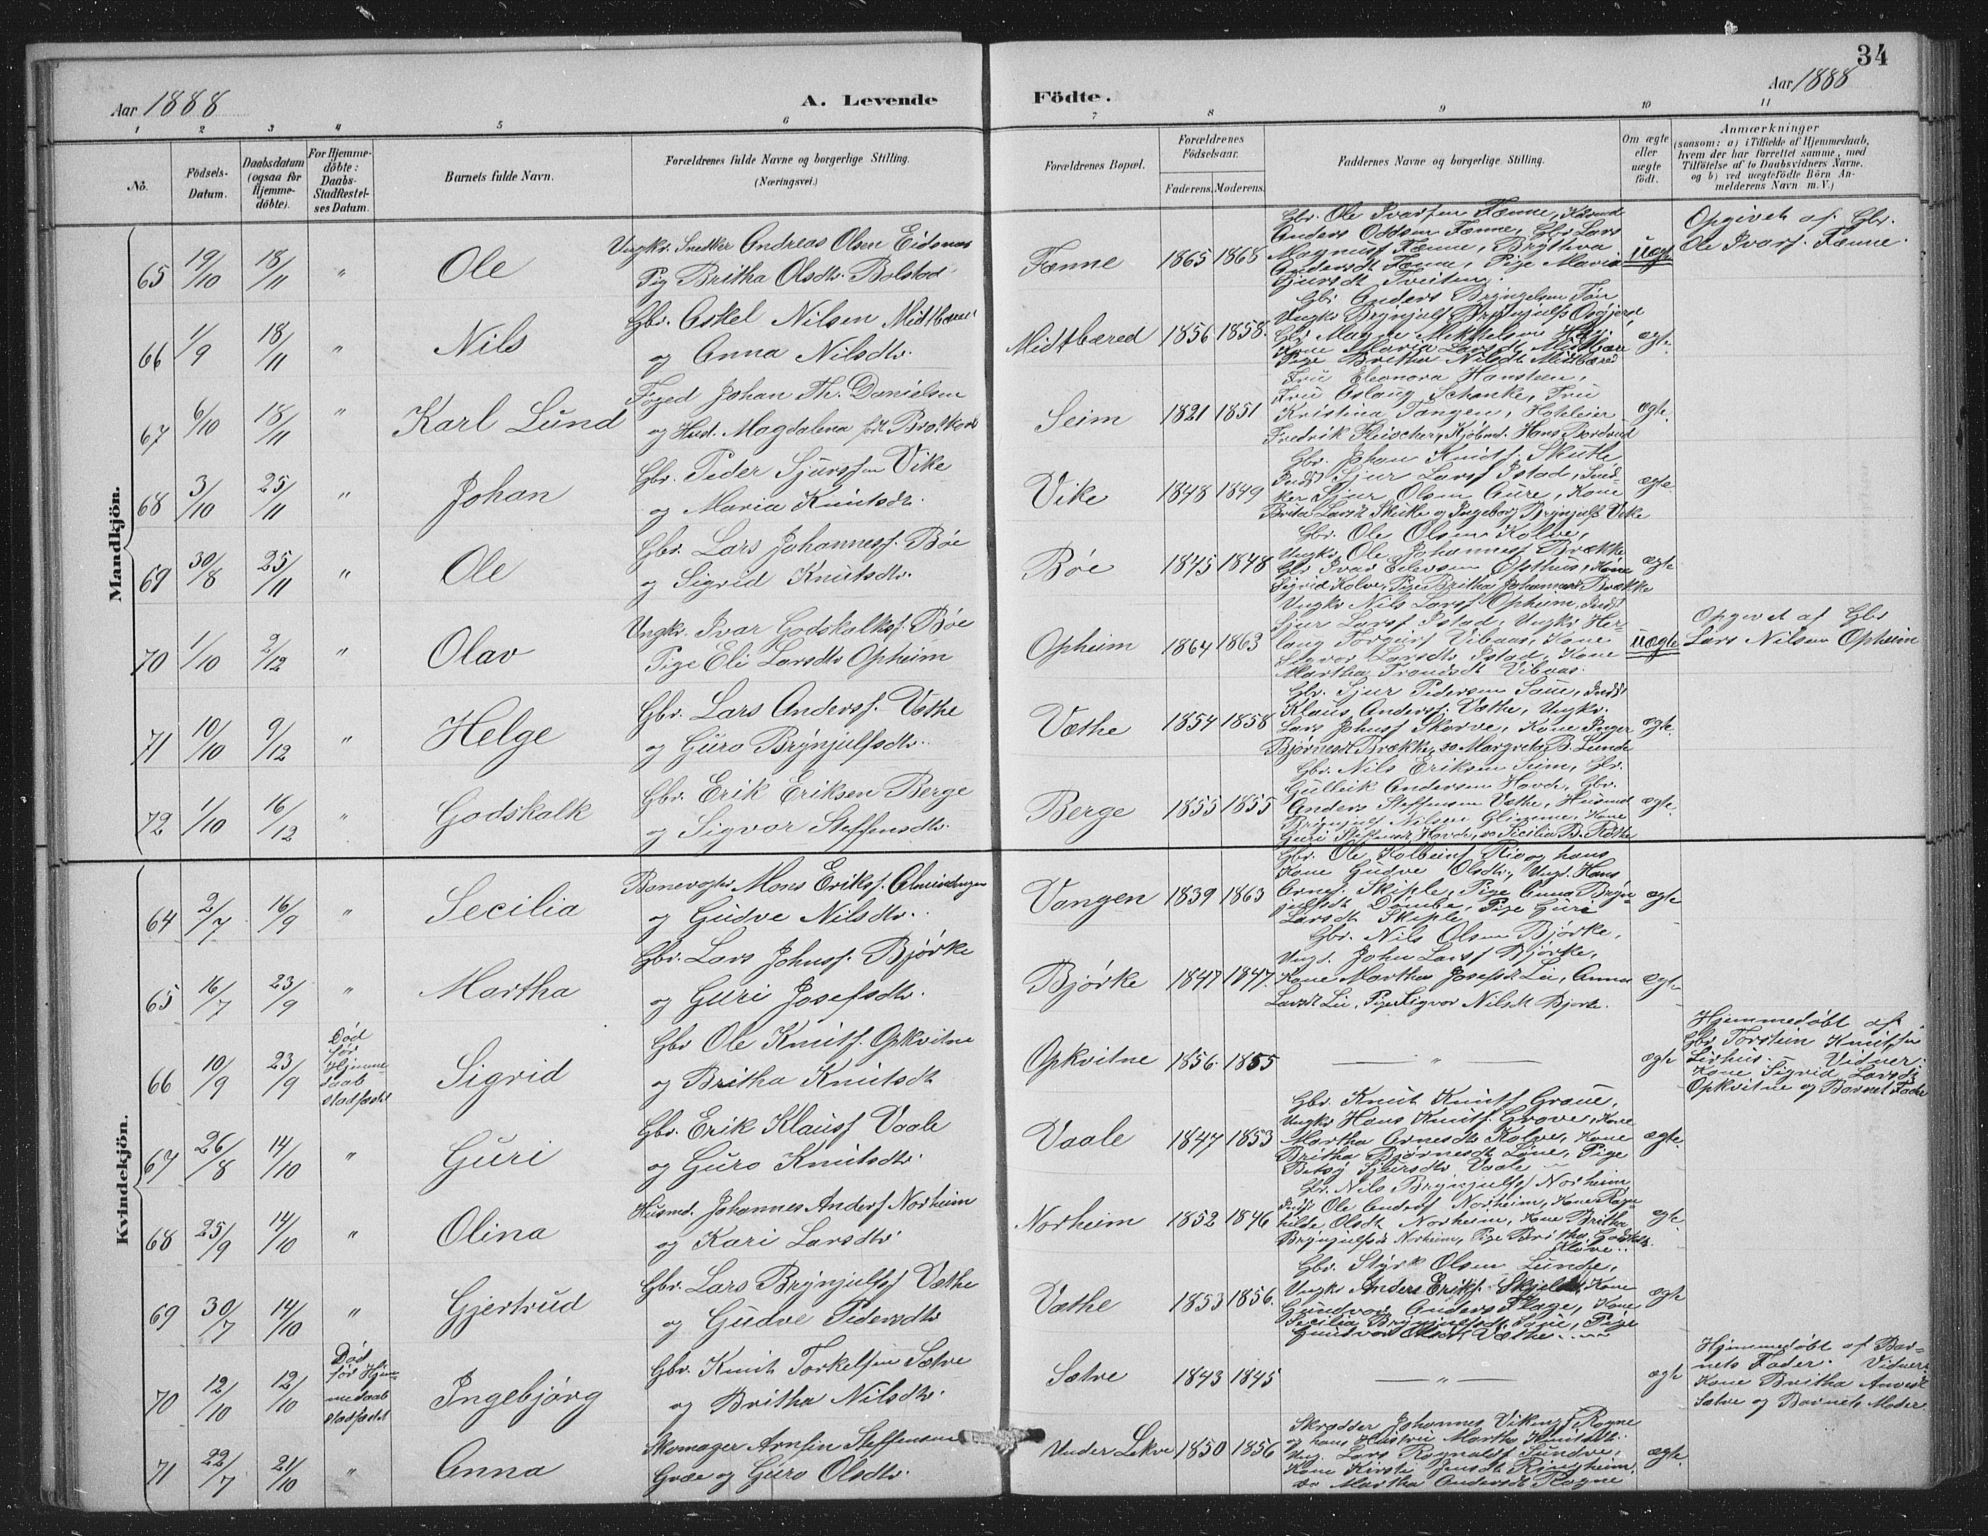 34
Aar 1888
A. Levende Födte.
Aar 1888
1 2 3 4 5 6 7 8 9 10 11
No.
Födsels-
Datum.
Daabsdatum
(ogsaa for
Hjemme-
döbte).
For Hjemme-
döbte:
Daabs-
Stadfæstel-
ses Datum.
Barnets fulde Navn.
Forældrenes fulde Navne og borgerlige Stilling.
(Næringsvei.)
Forældrenes Bopæl.
Forældrenes
Födselsaar.
Faderens. Moderens.
Faddernes Navne og borgerlige Stilling.
Om ægte
eller
uægte
födt.
Anmærkninger
(saasom: a) i Tilfælde af Hjemmedaab,
hvem der har forrettet samme, med
Tilföielse af to Daabsvidners Navne,
og b) ved uægtefödte Börn An-
melderens Navn m. V.)
Mandkjön.
65 19/10 18/11 " Ole
Ungkr. Snedker Andreas Olsen Eidsnes
Pig Britha Olsdtr. Bolstad
Fænne 1865 1868
Gbr. Ole Ivarsen Fænne,
Anders Oddsen Fænne, Gbr Lars
Magnusf Fænne, Brytheva
Andersdt Fænne, Pige Maria
Sjursdt Tveiten
uægte
Opgivet af Gbr.
Ole Ivars. Fænne.
66 1/9 18/11 " Nils
Gbr. Askel Nilsen Midtbæred
og Anna Nilsdtr.
Midtbæred 1856 1858.
Gbr Anders Bryngelsen Tøn
Ungkr Brynjulf Brynjulfs
Gbr Magne Mikkelsen
Kone Maria Larsdt Midtbære
Pige Britha Nilsdt Midtbæred
ægte.
67 6/10 18/11 " Karl Lund
Foged Johan Th. Danielsen
og Hust. Magdalena født Brolskov
Seim 1821 1851
Fru Eleonora Hansteen,
Fru Aslaug Schanke, Fru
Kristina Tangen,
Fredrik Fleischer, Kjøbmd. Hans
ægte.
68 3/10 25/11 " Johan
Gbr. Peder Sjursen Vike
og Maria Knutsdtr.
Vike 1848 1849
Gbr. Johan Knutsf. Skutle
Inds Sjur Larsf Istad, Sned-
ker Sjur Olsen Aure, Kone
Brita Larsdt Skutle og Ingeborg Brynjulfs Vike
ægte
69 30/8 25/11 " Ole
Gbr. Lars Johannesf. Bøe
og Sigrid Knutsdtr.
Bøe 1845 1848
Gbr. Ole Olsen Kolve,
Ungkr. Ole Johannesf Brække
Gbr Ivar Eilevsen Østhus, Kone
Sigrid Kolve, Pige Britha Johannesdt Brække
ægte
70 1/10 2/12 " Olav
Ungkr. Ivar Godskalksf. Bøe
Pige Eli Larsdtr Opheim
Opheim 1864 1863
Ungkr Nils Larsf Opheim, Inds
Sjur Larsf Istad, Ungkr Her-
laug Torgeirsf Vibaas, Kone
Sigvor Larsdtr Istad, Kone
Martha Trondsdt Vibaas.
uægte
Opgivet af Gbr
Lars Nilsen Opheim
71 10/10 9/12 " Helge
Gbr. Lars Andersf. Væthe
og Guro Brynjulfsdtr.
Væthe 1854 1858
Gbr. Sjur Pedersen Saue, Inds
Klaus Andersf. Væthe, Ungkr.
Lars Johnsf Skorve, Kone Inger
Bjørnesdt Brække, so Margreta B. Lunde
ægte.
72 1/10 16/12 " Godskalk
Gbr. Erik Eriksen Berge
og Sigvor Steffensdtr.
Berge 1855 1855
Gbr. Nils Eriksen Seim, Gbr.
Gulleik Andersen Havde, Gbr.
Anders Steffensen Væthe, Husmd
Brynjulf Nilsen Glimme, Kone
Guri Steffensdt Havde, so Sicilia Væthe
ægte.
Kvindekjön.
64 2/7 16/9 " Secilia
Banevogter Mons Eriksf. Almindingen
og Gudve Nilsdtr.
Vangen 1839 1863
Gbr. Ole Kolbeinsf Rio og hans
Kone Gudve Olsdtr, Ungk. Hans
Arnesf. Skiple, Pige Anna Bryn-
julfsdt Dømbe, Pige Guri
Larsdt Skiple
ægte
65 16/7 23/9 " Martha
Gbr. Lars Johnsf. Bjørke
og Guri Josefsdtr.
Bjørke 1847 1847.
Gbr. Nils Olsen Bjørke,
Ungk. John Larsf Bjørke,
Kone Martha Josefsdt Lii, Anna
Larsdt Lii, Pige Sigvor Nilsdt Bjørke.
ægte
66 10/9 23/9
Død
før
Hjemme
daab
stadfæstet
Sigrid
Gbr Ole Knutsf. Opkvitne
og Britha Knutsdt
Opkvitne 1856. 1855
— " — ægte
Hjemmedøbt af
Gbr Torstein Knutsen
Lirhus. Vidner.
Kone Sigrid Larsdt
Opkvitne og Barnets Fader
67 26/8 14/10 " Guri
Gbr. Erik Klausf Vaale
og Guro Knutsdtr.
Vaale 1847 1853
Gbr. Knut Knutsf Graue,
Ungkr Hans Knutsf. Grove, Kone
Martha Arnesdtr Kolve, Kone
Britha Bjørnesdt Løne, Pige
Betsy Sjursdtr Vaale
ægte.
68 25/9 14/10 " Olina
Husmd. Johannes Andersf Norheim
og Kari Larsdtr
Norheim 1852 1846
Gbr. Nils Brynjulfsf Norheim,
Inds Ole Andersf Norheim, Kone Ragn
hilde Olsdt Norheim, Kone Britha
Brynjulfsdt Norheim, Pige Britha
ægte.
69 30/7 14/10 " Gjertrud
Gbr. Lars Brynjulfsf Væthe
og Gudve Pedersdtr
Væthe 1853 1856.
Gbr. Styrk Olsen Lunde,
Ungk Anders Eriksf. Skjelde, Kone
Gundvor Anders Flage, Kone
Secilia Brynjulfsdt Saue, Pige
Gundvor Olsdt, Væthe
ægte
70 12/10 12/10
Død
før Hjem-
medaab
stadfæstet
Ingebjørg
Gbr. Knut Torkelsen Sætre
og Britha Nilsdtr.
Sætre 1843 1845
— " — ægte
Hjemmedøbt af Bar-
nets Fader. Vidner
Kone Britha
Sætre og Barnets Moder
71 22/7 21/10 " Anna
Skomager Arnfin Steffensen
Græe og Guro Olsdtr.
Under Lekve 1850 1856
Skrædder Johannes Vikingsf. Rogne
og hans Hustru Martha Knutsdtr.
Ung. Lars Rognaldsf Sundve,
Kone Kirsti Jensdt Ringheim,
so Martha Andersdt Rogne
ægte.